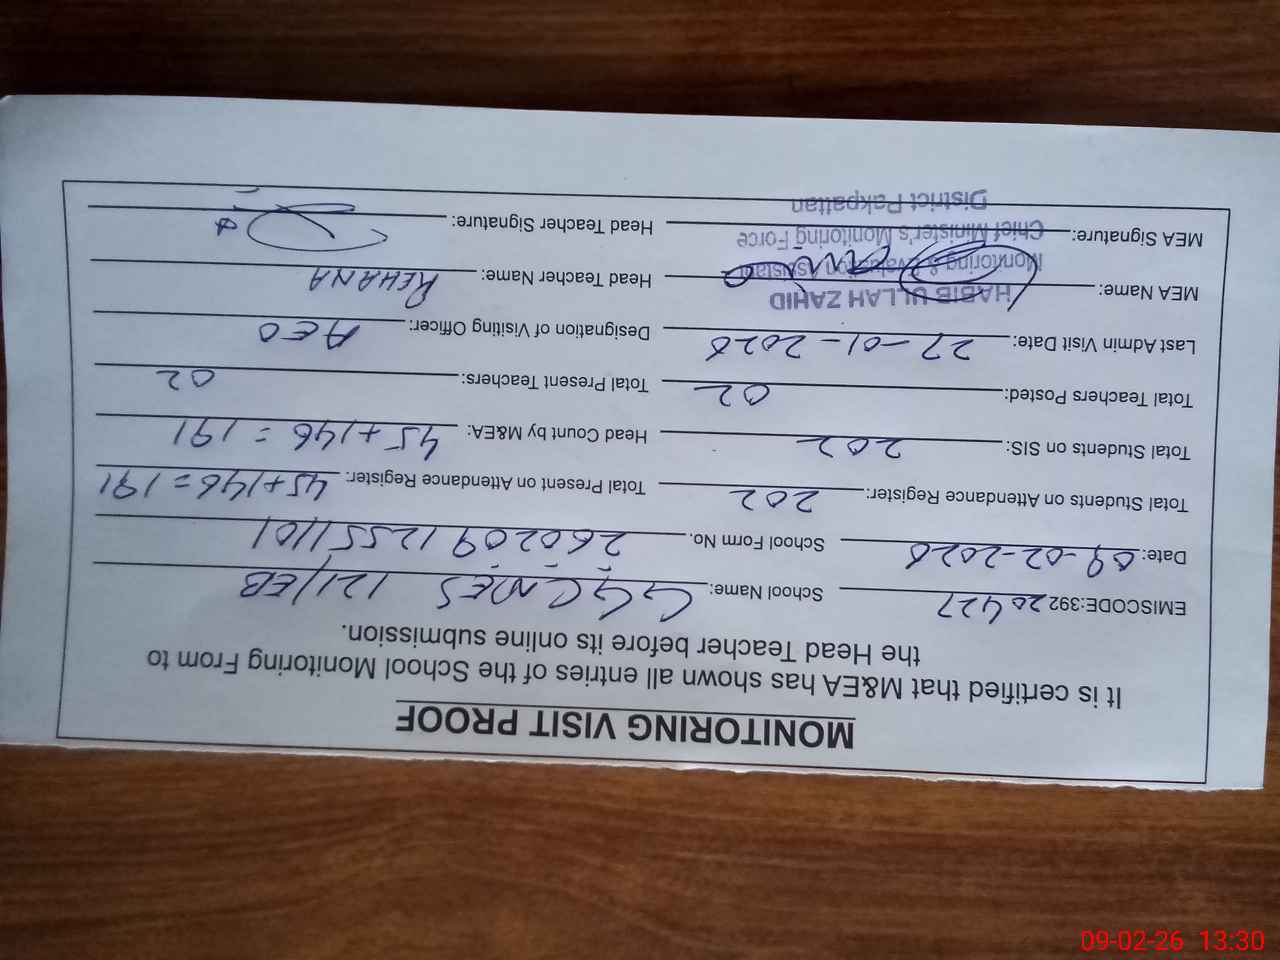 MONITORING VISIT PROOF
It is certified that M&EA has shown all entries of the School Monitoring From to
the Head Teacher before its online submission.
EMISCODE:39220427 School Name: GGCMES 121/EB
Date: 09-02-2026 School Form No. 26020912551101
Total Students on Attendance Register: 202 Total Present on Attendance Register: 45+146=191
Total Students on SIS: 202 Head Count by M&EA: 45+146=191
Total Teachers Posted: 02 Total Present Teachers: 02
Last Admin Visit Date: 27-01-2026 Designation of Visiting Officer: AEO
MEA Name: Head Teacher Name: REHANA
MEA Signature: Head Teacher Signature:
HABIB ULLAH ZAHID
Monitoring & Evaluation Assistant
Chief Minister's Monitoring Force
District Pakpattan
09-02-26 13:30